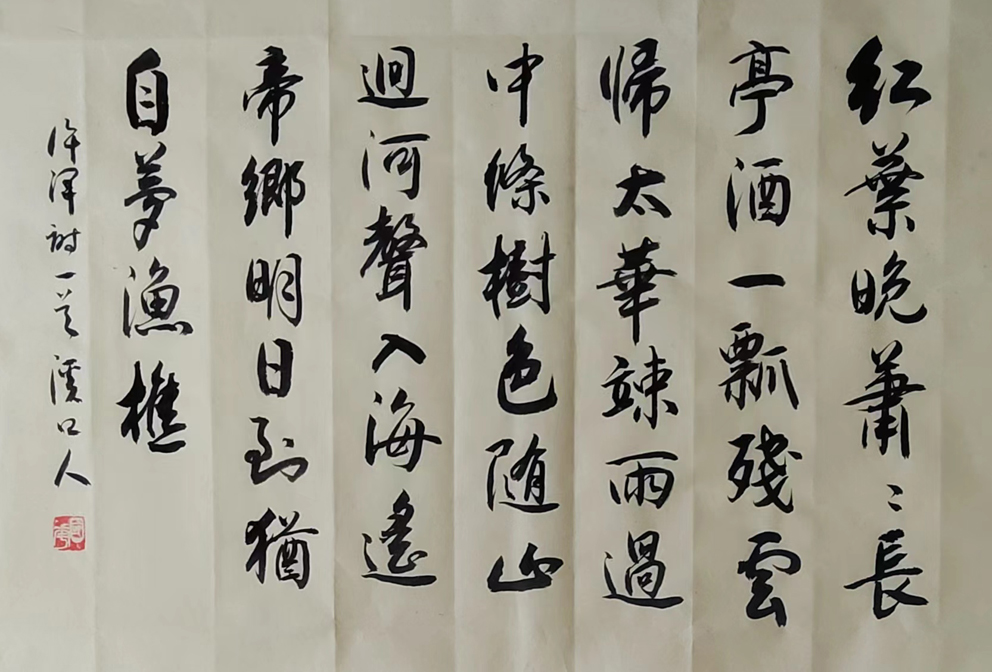 红葉晚蕭〻長
亭酒一瓢殘雲
歸太華踈雨過
中條樹色随山
迥河聲入海遙
帝鄉明日到猶
自夢漁樵
许渾詩一首 溪口人